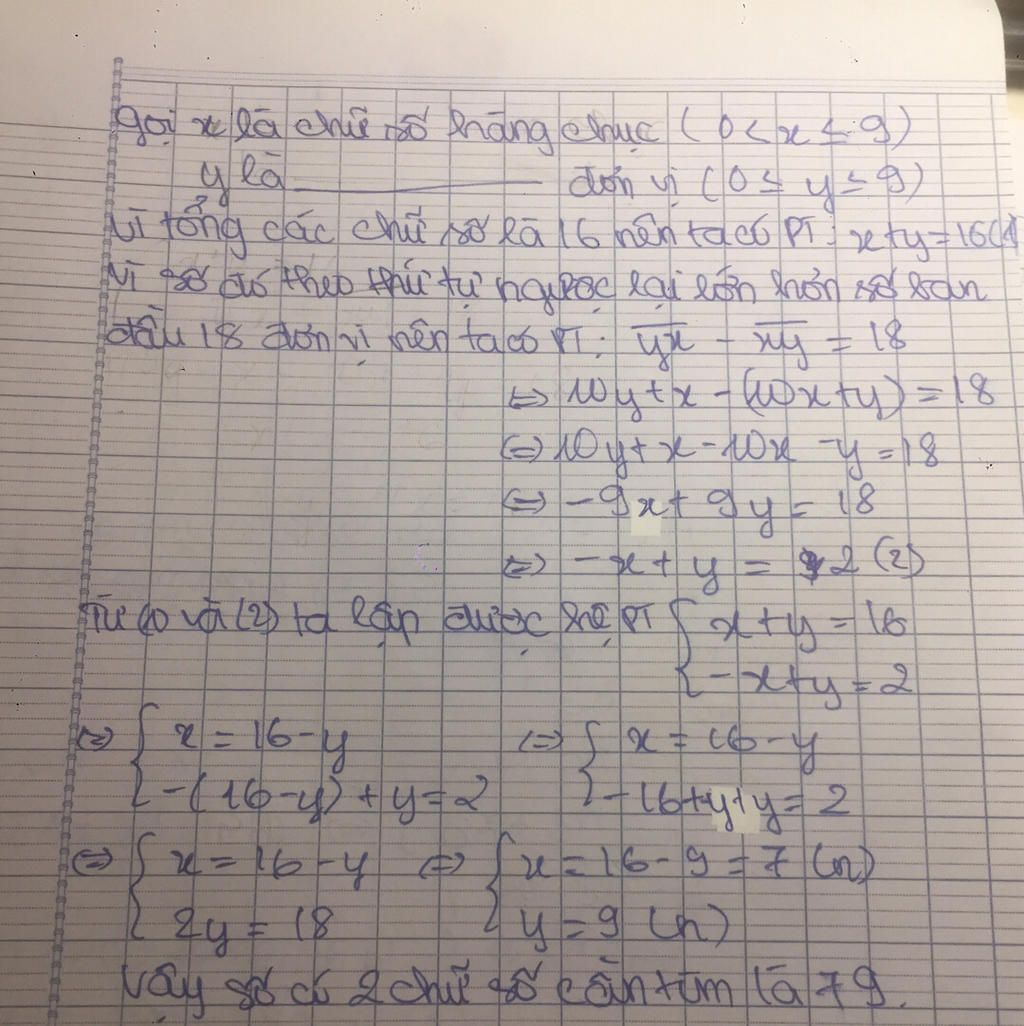 Gọi x là chữ số hàng chục (0 < x ≤ 9)
y là ———— đơn vị (0 ≤ y ≤ 9)
Vì tổng các chữ số là 16 nên ta có PT: x+y=16(1)
Vì số đó theo thứ tự ngược lại lớn hơn số ban
đầu 18 đơn vị nên ta có PT: y̅x̅ - x̅y̅ = 18
⇔ 10y+x-(10x+y)=18
⇔ 10y+x-10x-y=18
⇔ -9x+9y=18
⇔ -x+y=2 (2)
Từ (1) và (2) ta lập được hệ PT { x+y=16
-x+y=2
⇔ { x=16-y ⇔ { x=16-y
-(16-y)+y=2 -16+y+y=2
⇔ { x=16-y ⇔ { x=16-9=7 (n)
2y=18 y=9 (n)
Vậy số có 2 chữ số cần tìm là 79.